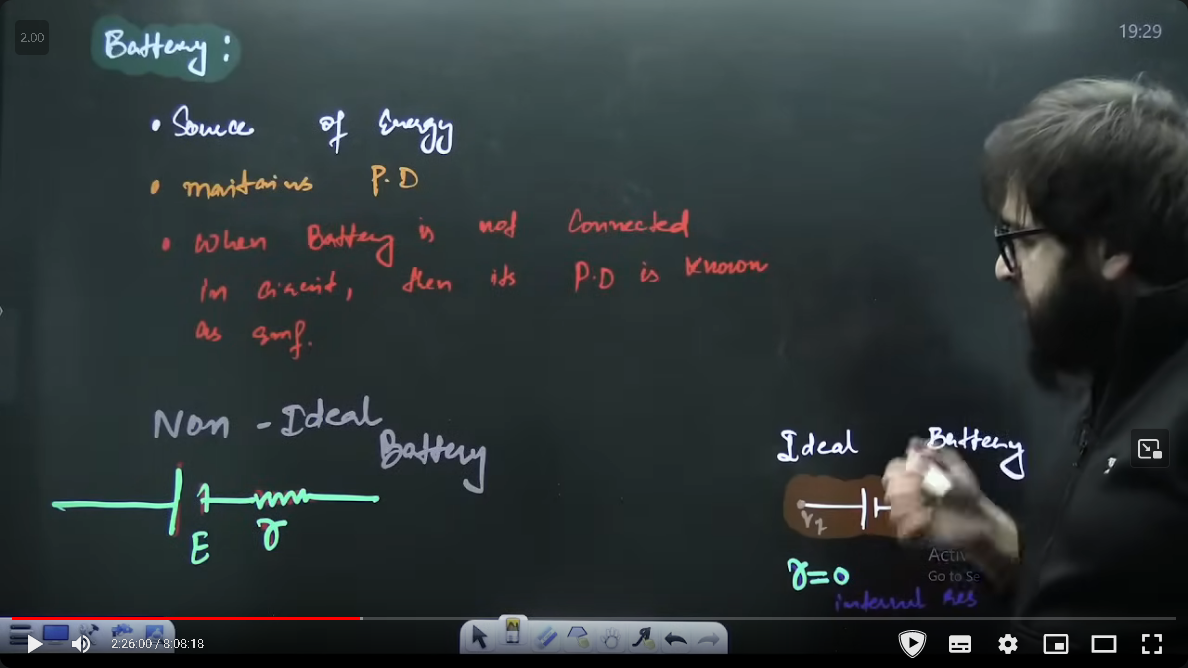 2.00
19:29
Battery:
• Source of Energy
• maintains P.D
• When Battery is not Connected
in circuit, then its P.D is known
as emf.
Non-Ideal
Battery
E
r
Ideal Battery
r=0
internal Res
Go to Se
2:26:00 / 8:08:18